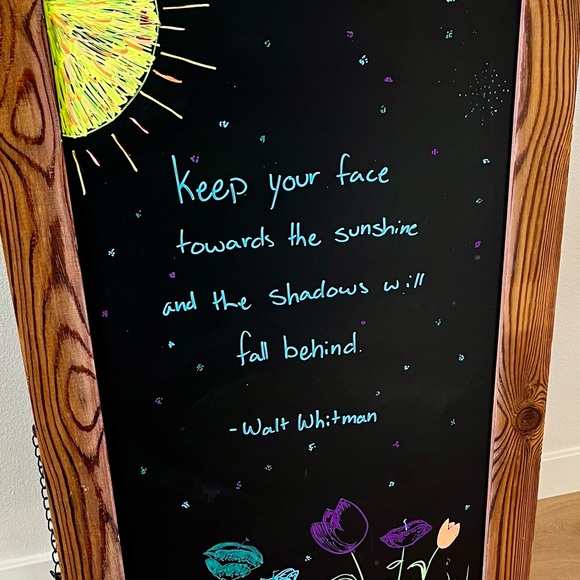 Keep your face
towards the sunshine
and the shadows will
fall behind.
- Walt Whitman